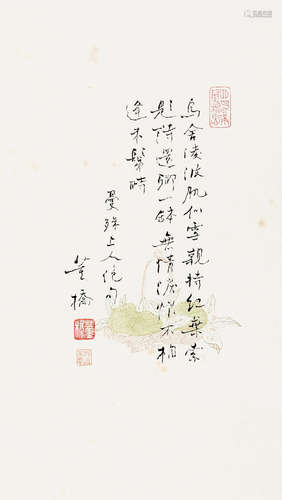 烏舍凌波肌似雪親持紅葉索
題詩還卿一鉢無情淚恨不相
逢未鬀時
曼殊上人絕句
董橋